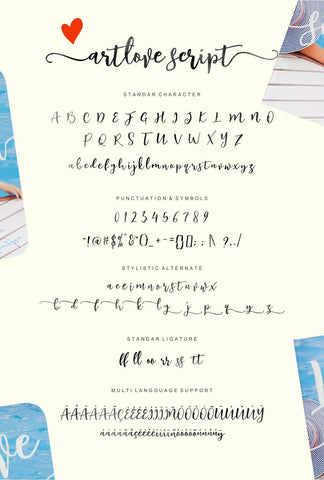 artlove script
STANDAR CHARACTER
A B C D E F G H I J K L M N O
P Q R S T U V W X Y Z
abcdefghijklmnopqrstuvwxyz
PUNCTUATION & SYMBOLS
0 1 2 3 4 5 6 7 8 9
STYLISTIC ALTERNATE
a c e i m n r s t u v w x
b d f h k l y j p q y z
STANDAR LIGATURE
ff ll oo rr ss tt
MULTI LANGGUAGE SUPPORT